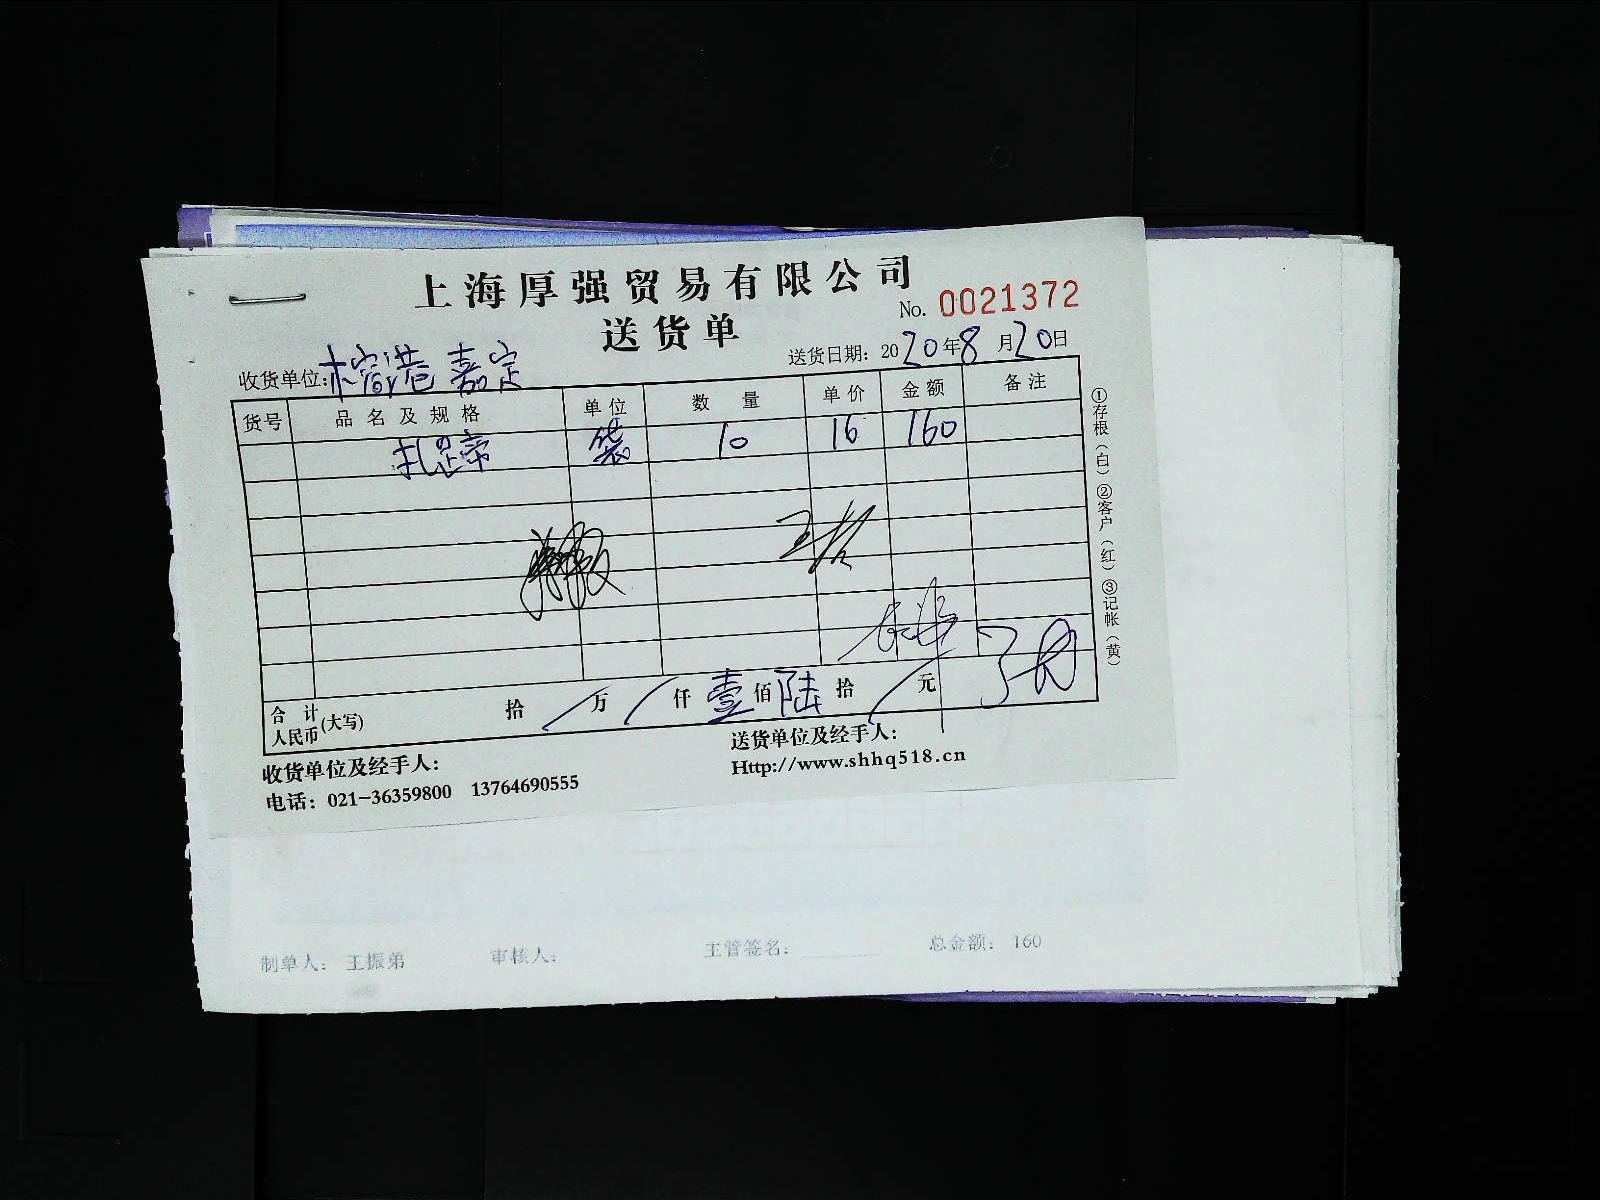 上海厚强贸易有限公司
No. 0021372
送货单
送货日期：2020年8月20日
收货单位：榕港 嘉定
货号 品名及规格 单位 数量 单价 金额 备注
袋 10 16 160
合计人民币(大写) 拾 万 仟 壹 佰 陆 拾 元
收货单位及经手人：
送货单位及经手人：
电话：021-36359800 13764690555
Http://www.shhq518.cn
①存根（白）②客户（红）③记帐（黄）
制单人： 王振弟 审核人： 主管签名： 总金额： 160